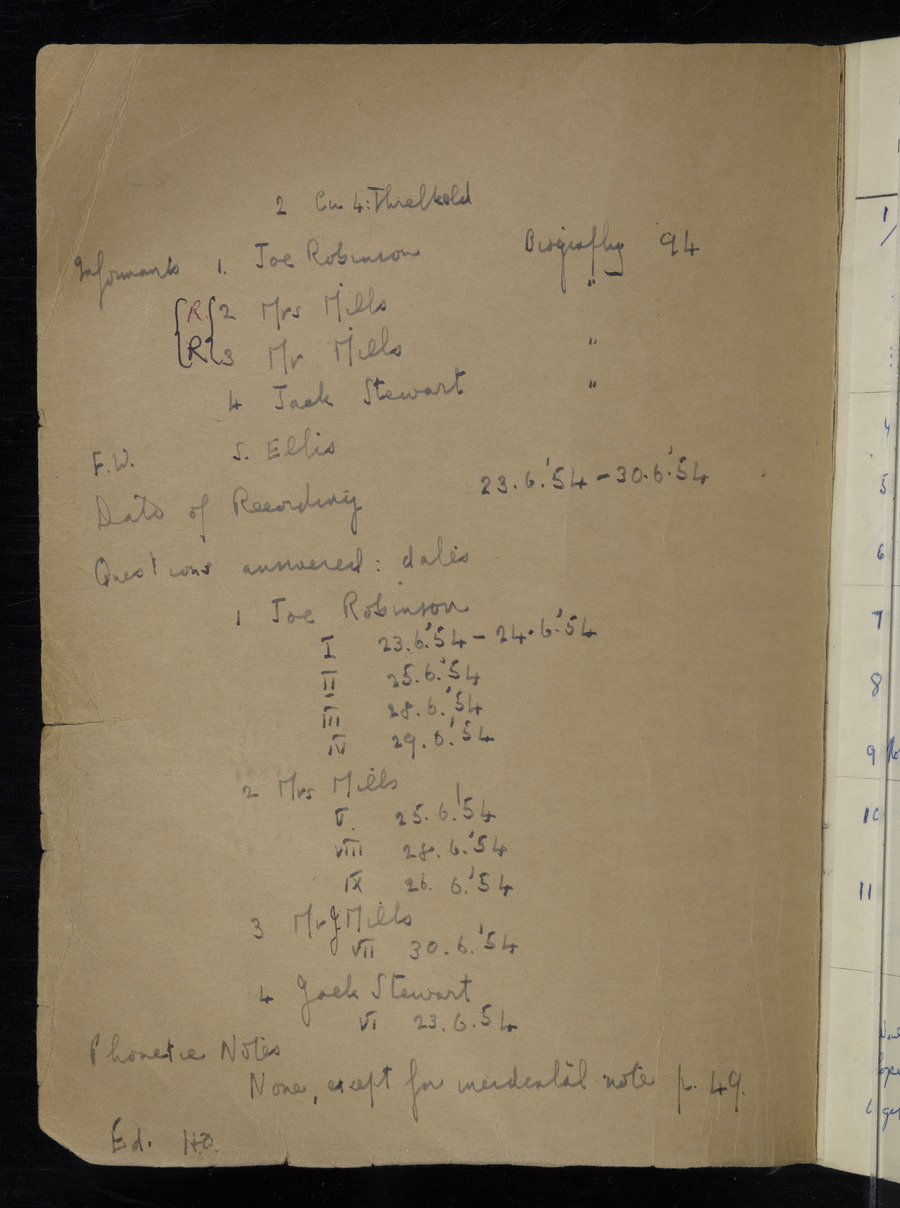 2 Cu 4: Threlkeld
Informants 1. Joe Robinson Biography 94
{R { 2 Mrs Mills "
{R { 3 Mr Mills "
4 Jack Stewart "
F.W. S. Ellis
Date of Recording 23.6.'54 - 30.6.'54
Questions answered: dates
1 Joe Robinson
I 23.6.'54 - 24.6.'54
II 25.6.'54
III 28.6.'54
IV 29.6.'54
2 Mrs Mills
V. 25.6.'54
VIII 28.6.'54
IX 26. 6.'54
3 Mr J Mills
VII 30.6.'54
4 Jack Stewart
VI 23.6.54
Phonetic Notes
None, except for incidental note p. 49.
Ed.
1
4
5
6
7
8
9
10
11